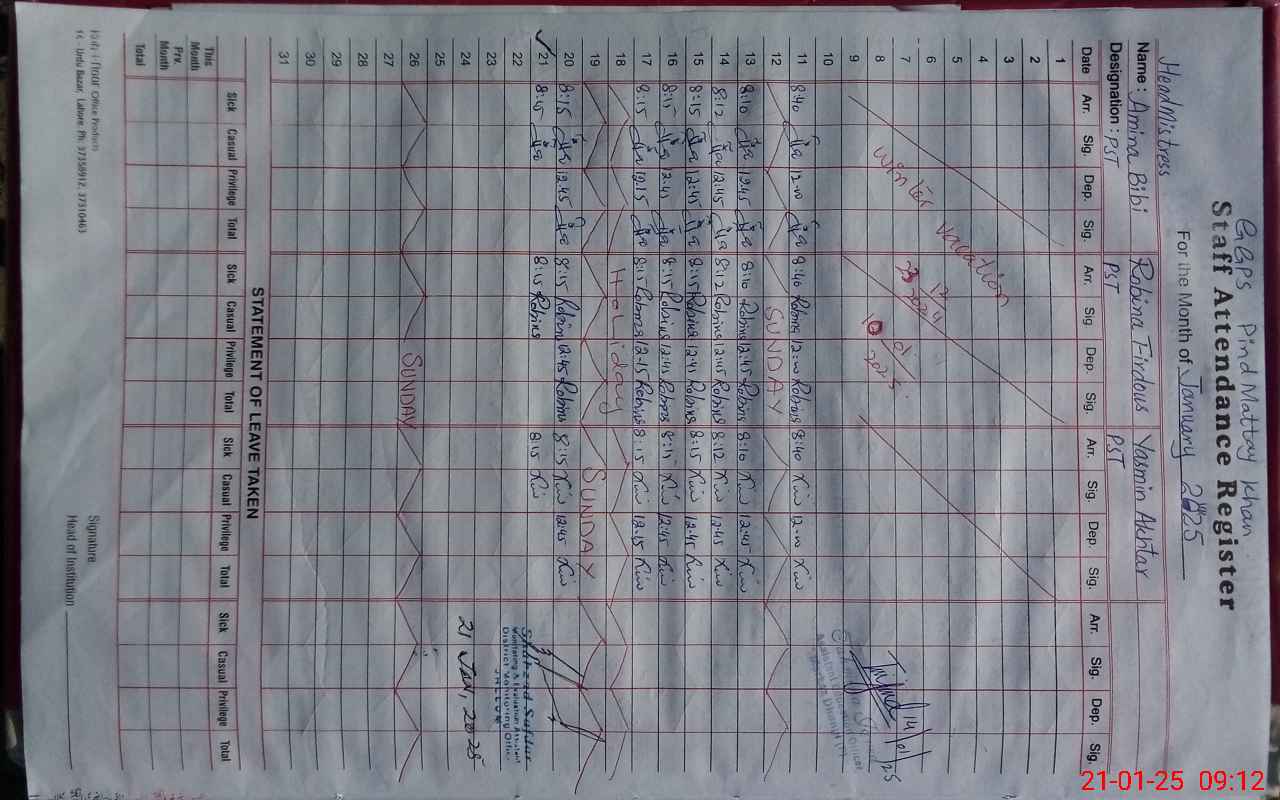 GBPS Pind Mattay Khan
Staff Attendance Register
For the Month of January 2025
HeadMistress
Name : Amina Bibi Robina Firdous Yasmin Akhtar
Designation : PST PST PST
Date Arr. Sig. Dep. Sig. Arr. Sig Dep. Sig. Arr. Sig. Dep. Sig. Arr. Sig. Dep. Sig.
1
2
3
4
5
6
7
8
9
winter vacation
10
01
2025
10
11 8:40 12:00 8:40 Robina 12:00 Robina 8:40 12:00
12 SUNDAY
13 8:10 12:45 8:10 Robina 12:45 Robina 8:10 12:45
14 8:12 12:45 8:12 Robina 12:45 Robina 8:12 12:45
15 8:15 12:45 8:15 Robina 12:45 Robina 8:15 12:45
16 8:15 12:45 8:15 Robina 12:45 Robina 8:15 12:45
17 8:15 12:15 8:15 Robina 12:15 Robina 8:15 12:15
18 Holiday
19 SUNDAY
20 8:15 12:45 8:15 Robina 12:45 Robina 8:15 12:45
21 8:15 8:15 Robina 8:15
22
23
24
25
26 SUNDAY
27
28
29
30
31
14/01/25
Assistant Education Officer
Shahzad Safdar
Monitoring & Evaluation Assistant
District Monitoring Office
JHELUM
21 Jan, 2025
STATEMENT OF LEAVE TAKEN
Sick Casual Privilege Total Sick Casual Privilege Total Sick Casual Privilege Total Sick Casual Privilege Total
This Month
Prv. Month
Total
Signature
Head of Institution
Office Products
14 - Urdu Bazar, Lahore. Ph: 37358912, 37310463
21-01-25 09:12